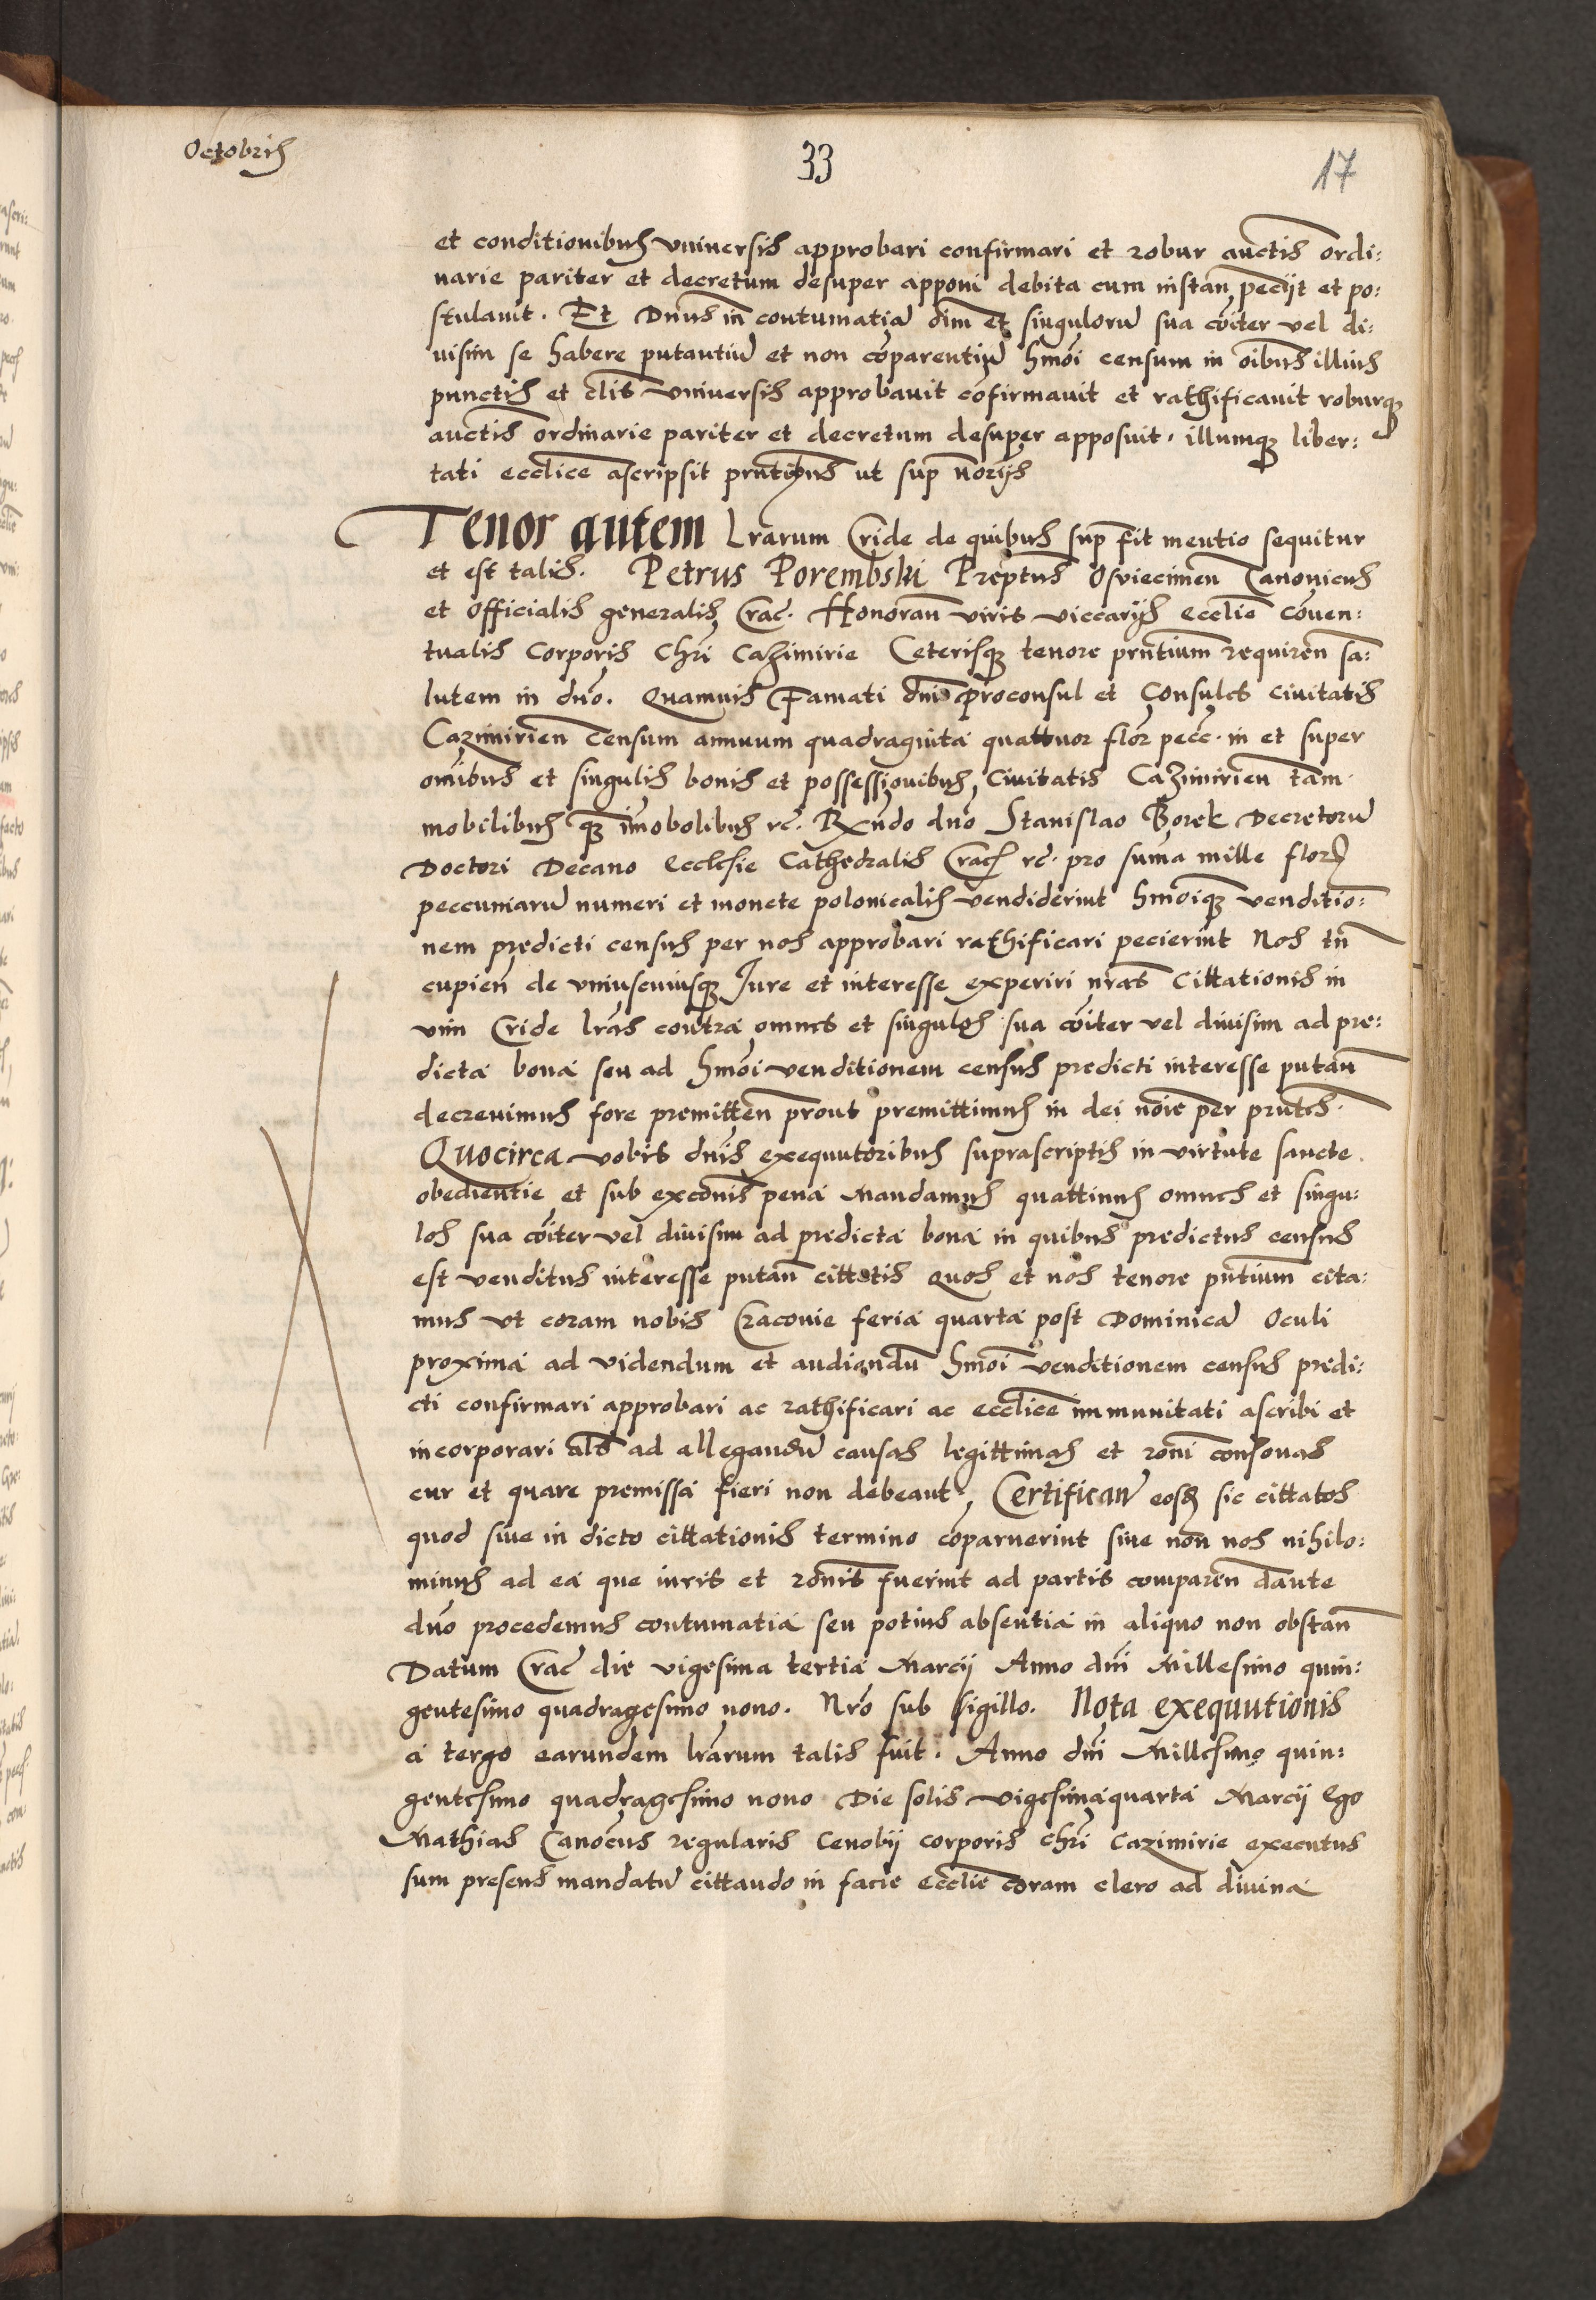 Octobris
33
17
et conditionibus vniuersis approbari confirmari et robur auctis ordi:
narie pariter et decretum desuper apponi debita cum instan peciit et po:
stulauit. Et Dnus in contumatia oīm et singuloru sua cōiter vel di:
uisim se habere putantiu et non cōparentiu hmōi censum in oībus illius
punctis et clis vniuersis approbauit cōfirmauit et rathificauit roburq3
auctis ordinarie pariter et decretum desuper apposuit. illumq3 liber:
tati ecclice ascripsit pntibus ut sup norijs
Tenor autem Lrarum Cride de quibus sup fit mentio sequitur
et est talis. Petrus Porembski Preptus Osviecimen Canonicus
et Officialis generalis Crac. Honoran viris viccarijs ecclie cōuen:
tualis Corporis Chri Cazimirie Ceterisq3 tenore prntium requiren sa:
lutem in dno. Quamuis Famati dni proconsul et Consules ciuitatis
Cazimirien Censum annuum quadraginta quattuor flor pecc. in et super
omībus et singulis bonis et possessionibus Ciuitatis Cazimirien tam
mobilibus q3 imobolibus rc. Rxndo dno Stanislao Borek Decretoru
Doctori Decano Ecclesie Cathedralis Crac rc. pro suma mille flor
peccuniaru numeri et monete polonicalis vendiderint hmōiq3 venditio:
nem predicti census per nos approbari rathificari pecierint Nos tn
cupien de vniuscuiusq3 Jure et interesse experiri nras Cittationis in
vim Cride lras contra omnes et singulos sua cōiter vel diuisim ad pre:
dicta bona seu ad hmōi venditionem census predicti interesse putan
decreuimus fore premitten prout premittimus in dei noie per prntes.
Quocirca vobis dnis exequutoribus suprascriptis in virtute sancte
obedientie et sub exconis pena mandamus quattinus omnes et singu:
los sua cōiter vel diuisim ad predicta bona in quibus predictus census
est venditus interesse putan cittetis quos et nos tenore pntium cita:
mus vt coram nobis Cracouie feria quarta post Dominica Oculi
proxima ad videndum et audiendu hmōi venditionem census predi:
cti confirmari approbari ac rathificari ac ecclice immunitati ascribi et
incorporari als ad allegandu causas legittimas et roni consonas
cur et quare premissa fieri non debeant. Certifican eosd sic cittatos
quod siue in dicto cittationis termino cōparuerint siue non nos nihilo:
minus ad ea que iuris et ronis fuerint ad partis comparen dante
dno procedemus contumatia seu potius absentia in aliquo non obstan
Datum Crac die vigesima tertia Marcij Anno dni Millesimo quin:
gentesimo quadragesimo nono. Nro sub sigillo. Nota exequutionis
a tergo earundem lrarum talis fuit. Anno dni Millesimo quin:
gentesimo quadragesimo nono Die solis vigesimaquarta Marcij Ego
Mathias Canocus regularis Cenobij corporis chri Cazimirie executus
sum presens mandatu cittando in facie ecclie coram clero ad diuina